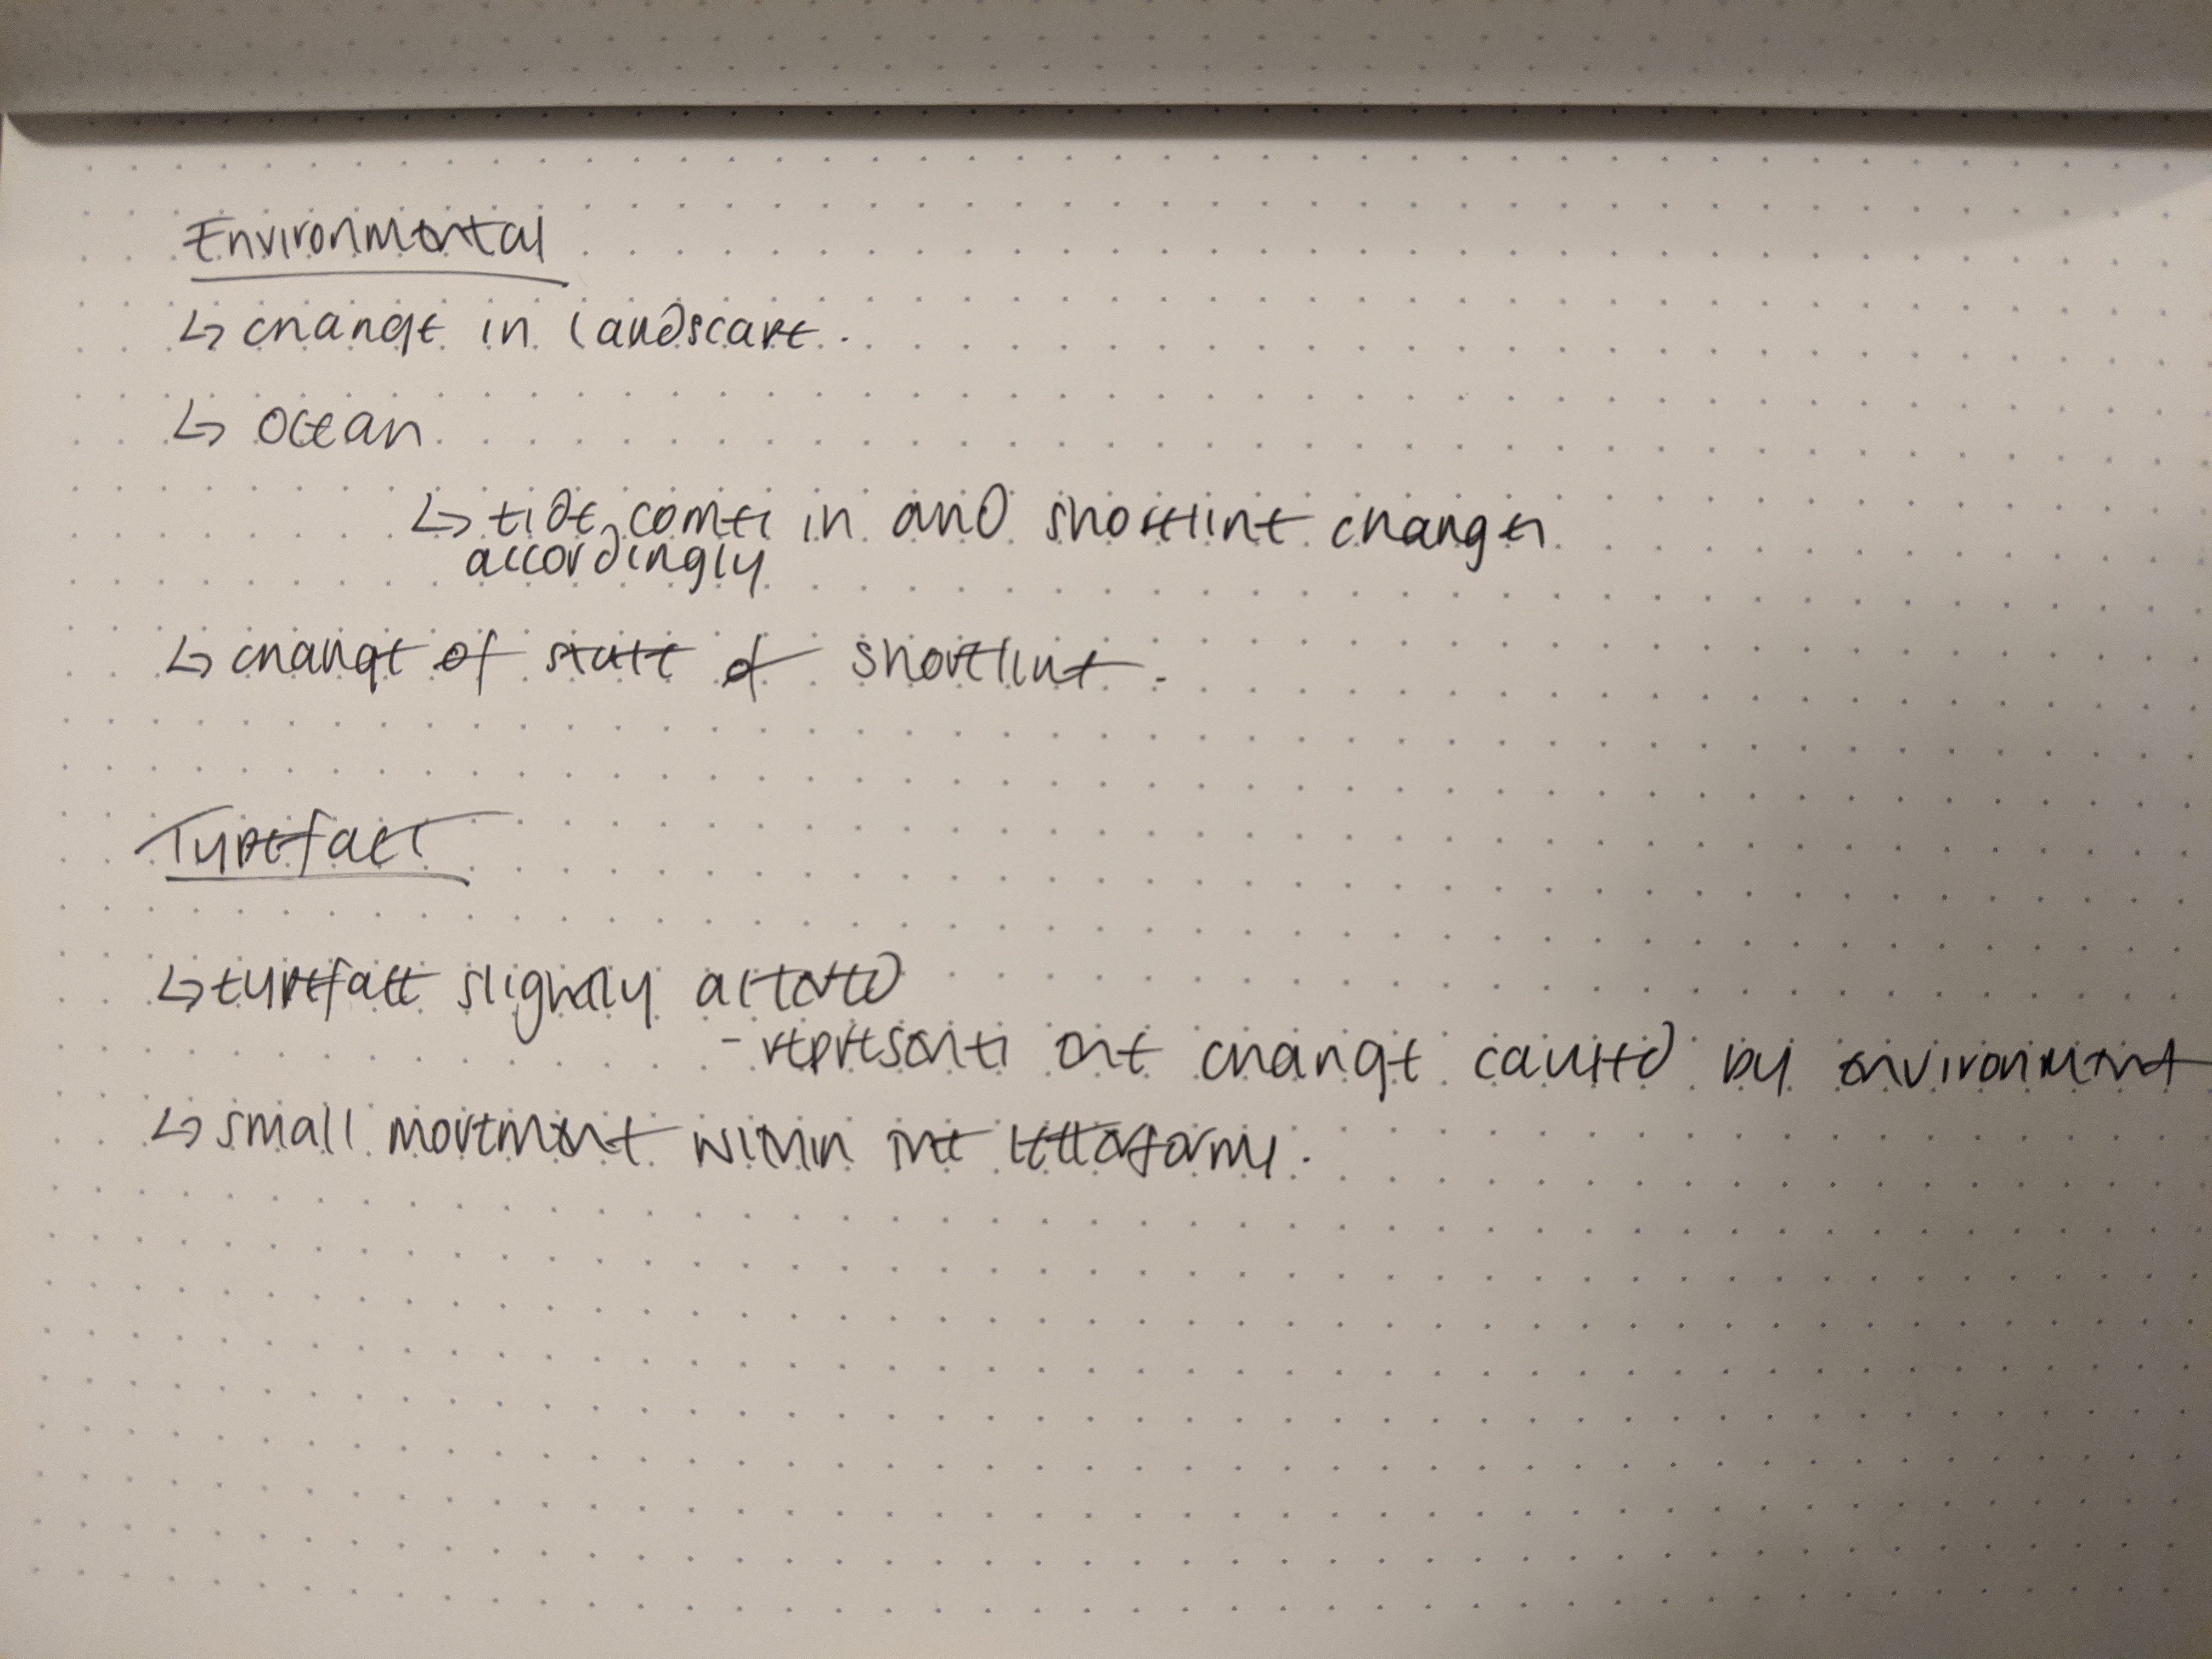 Environmental
↳ change in landscape.
↳ ocean
↳ tide comes in and shoreline changes
accordingly
↳ change of state of shoreline.
Typeface
↳ typeface slightly altered
- represents the change caused by environment
↳ small movement within the letterforms.